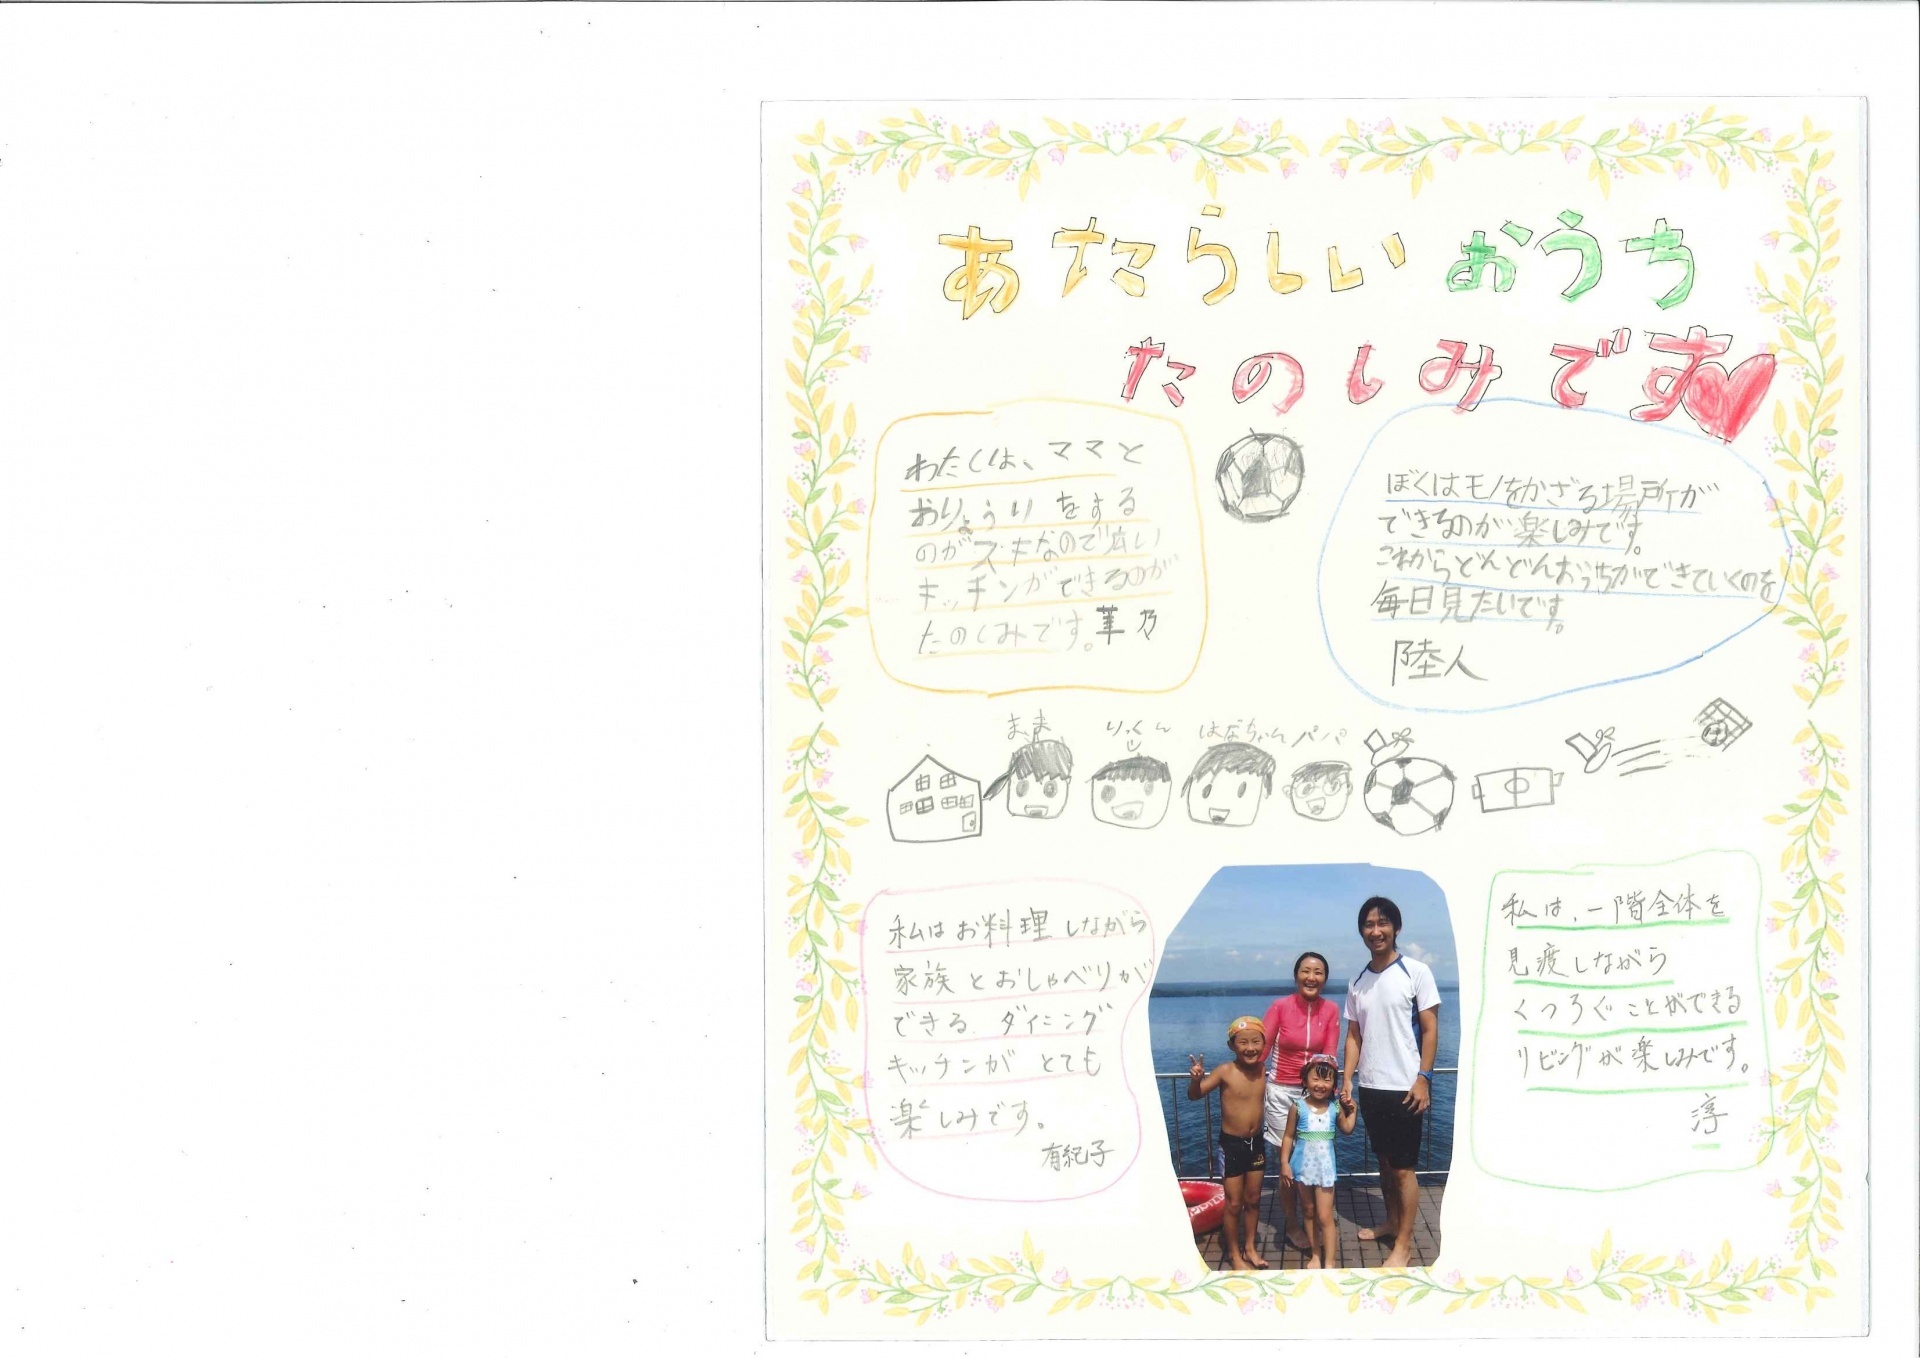 あたらしいおうち
たのしみです
わたしは、ママと
おりょうりをする
のが大すきなので広い
キッチンができるのが
たのしみです。
ぼくはモノをかざる場所が
できるのが楽しみです。
これからどんどんおうちができていくのを
毎日見たいです。
陸人
まま
りっくん
はなちゃん
パパ
私はお料理しながら
家族とおしゃべりが
できる、ダイニング
キッチンがとても
楽しみです。
有紀子
私は、一階全体を
見渡しながら
くつろぐことができる
リビングが楽しみです。
淳